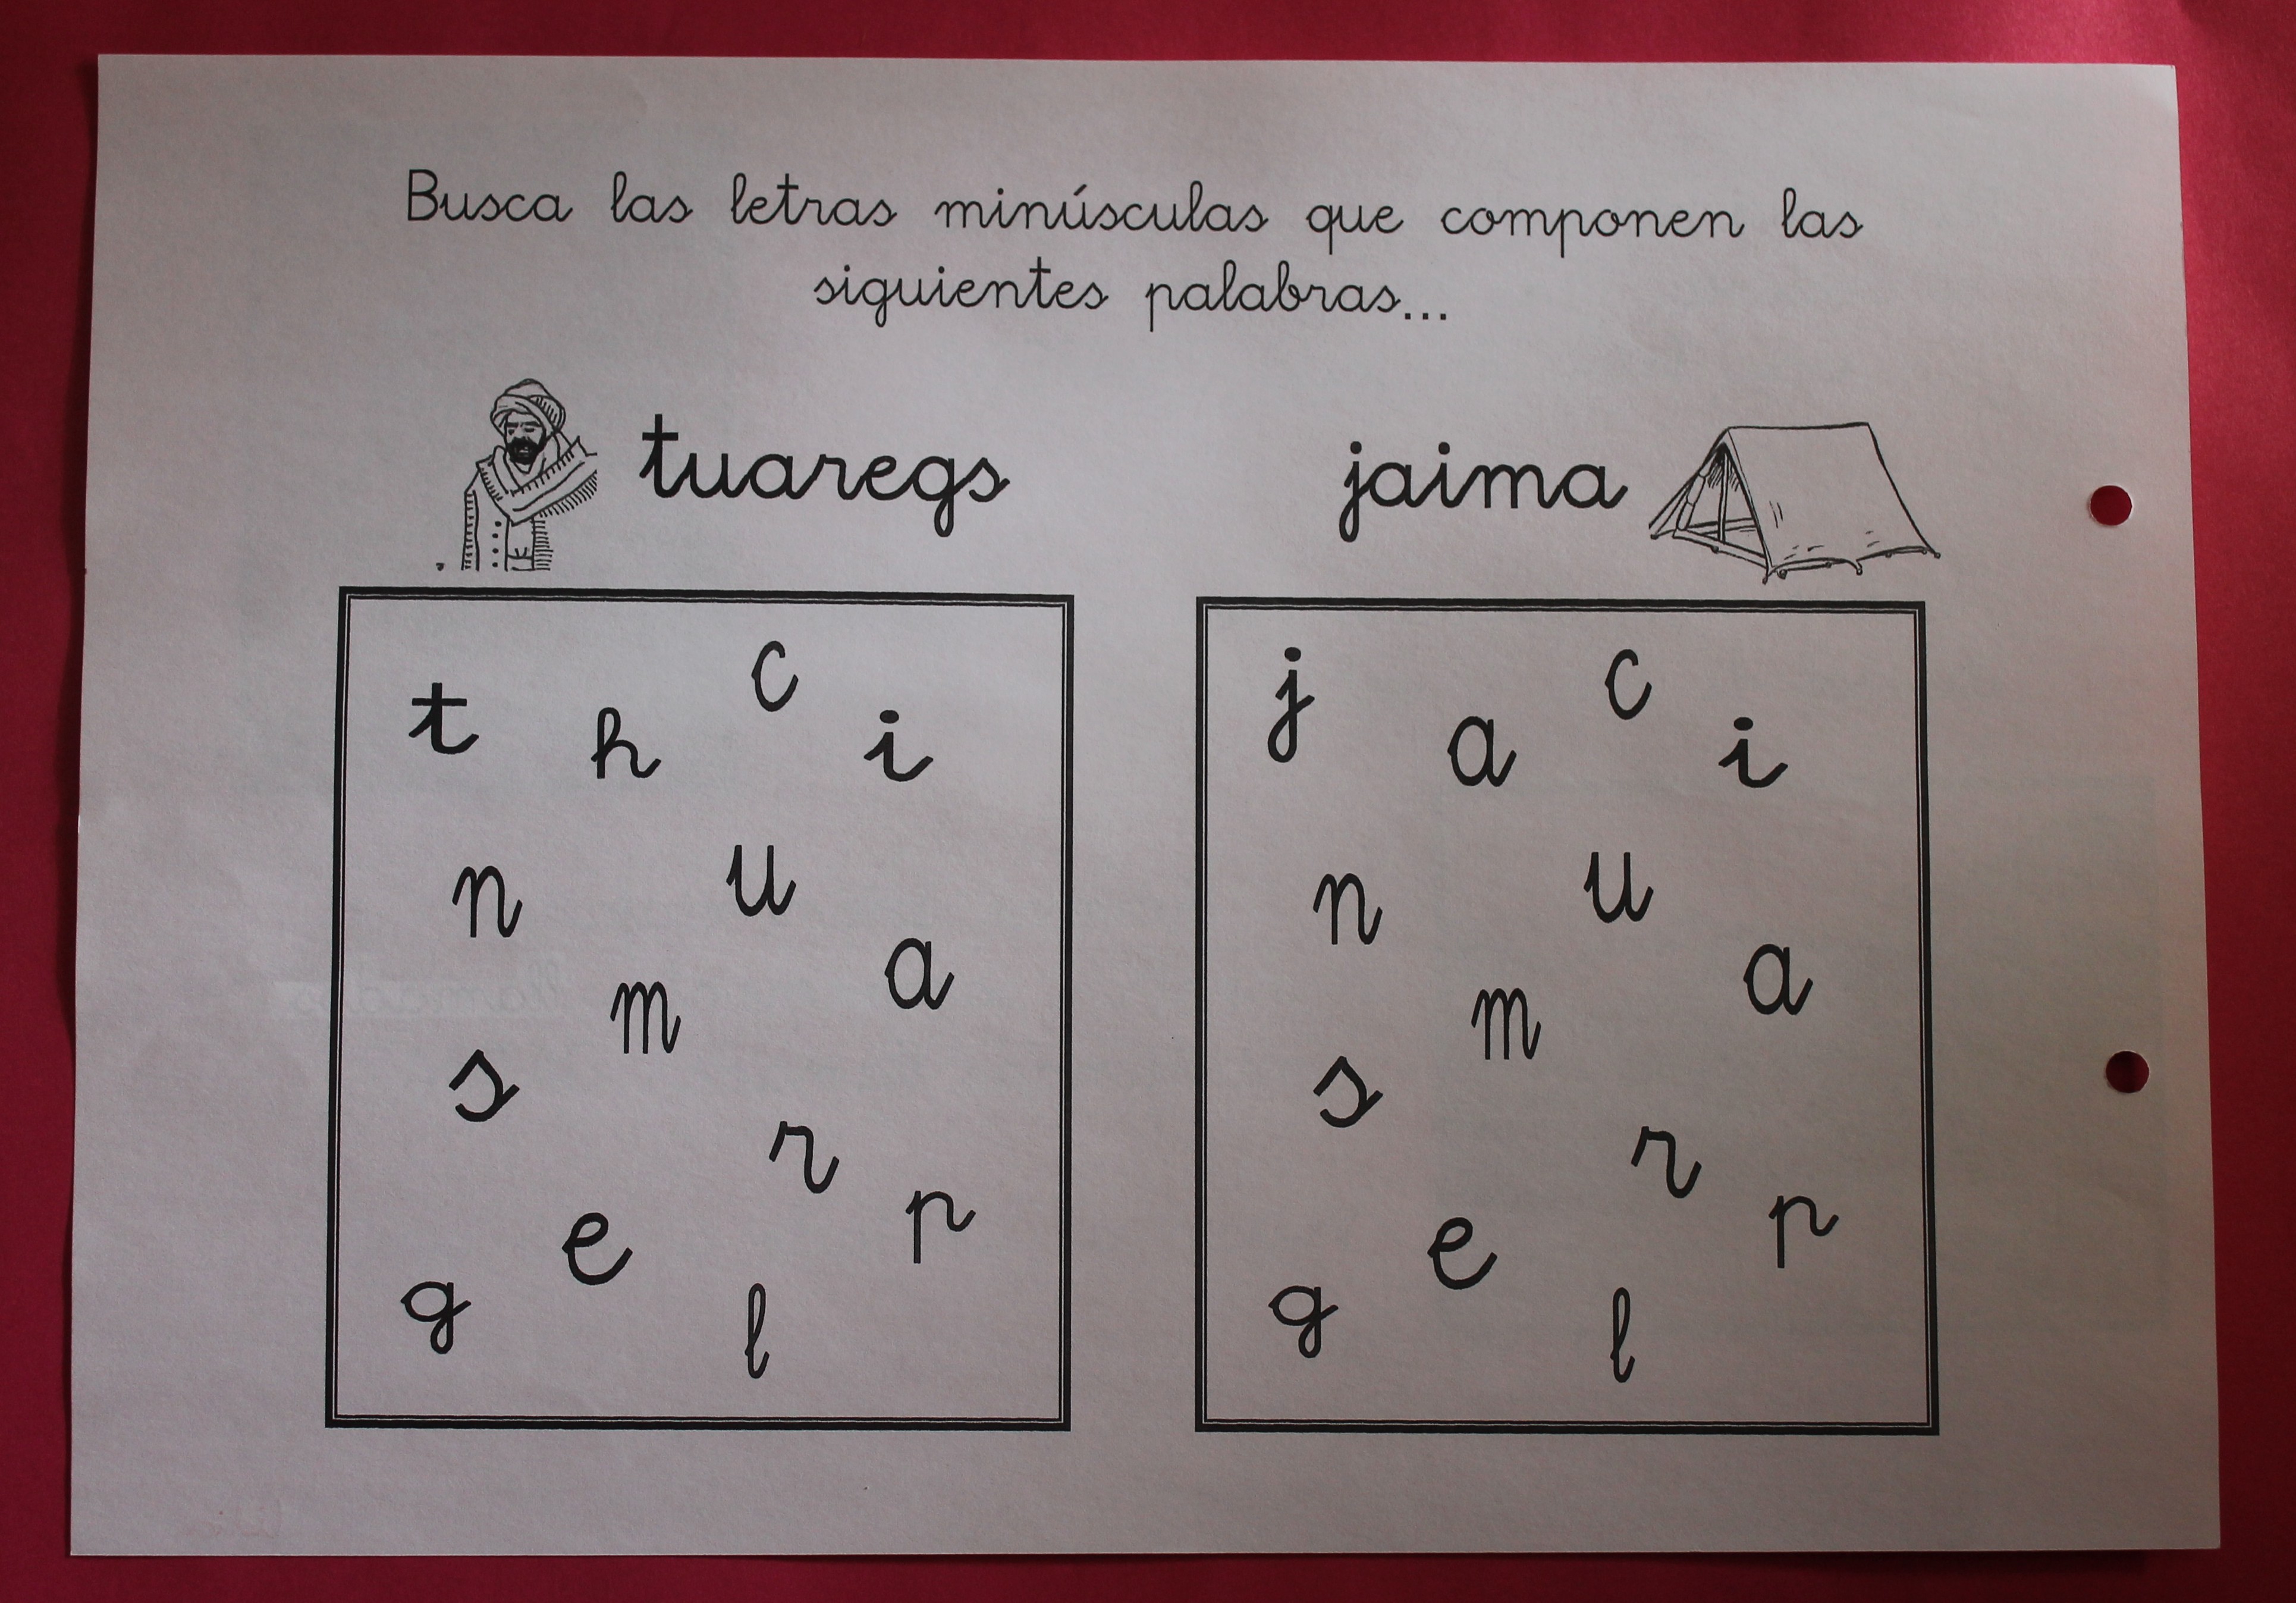 Busca las letras minúsculas que componen las
siguientes palabras...
tuaregs
jaima
c
t h i
n u
a
m
s
r
e p
g l
j c
a i
n u
a
m
s
r
e p
g l